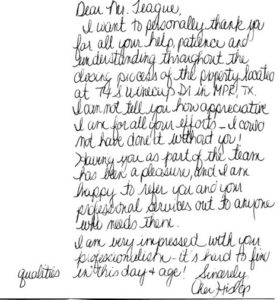 Dear Mr. Teague,
I want to personally thank you
for all your help, patience and
understanding throughout the
closing process of the property located
at Dr in TX.
I am not tell you how appreciative
I am for all your efforts - I could
not have done it without you!
Having you as part of the team
has been a pleasure, and I am
happy to refer you and your
professional services out to anyone
who needs them.
I am very impressed with your
professionalism - it's hard to find
qualities in this day & age! Sincerely,